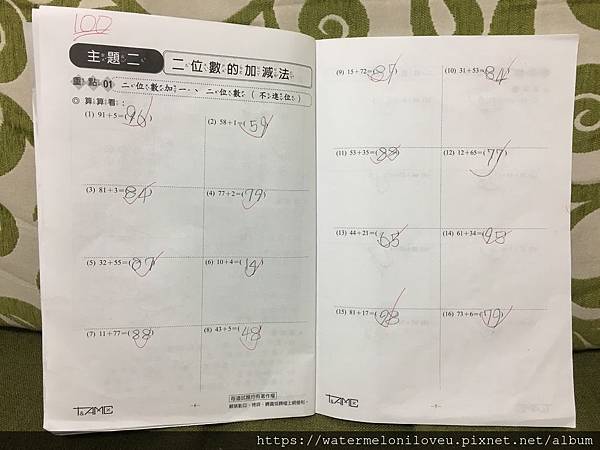 100
主題二 二位數的加減法
重點01 二位數加一、二位數（不進位）
◎ 算算看：
(1) 91+5=(96)
(2) 58+1=(59)
(3) 81+3=(84)
(4) 77+2=(79)
(5) 32+55=(87)
(6) 10+4=(14)
(7) 11+77=(88)
(8) 43+5=(48)
每道試題均有著作權
TEAME
-1-
(9) 15+72=(87)
(10) 31+53=(84)
(11) 53+35=(88)
(12) 12+65=(77)
(13) 44+21=(65)
(14) 61+34=(95)
(15) 81+17=(98)
(16) 73+6=(79)
https://watermeloniloveu.pixnet.net/album